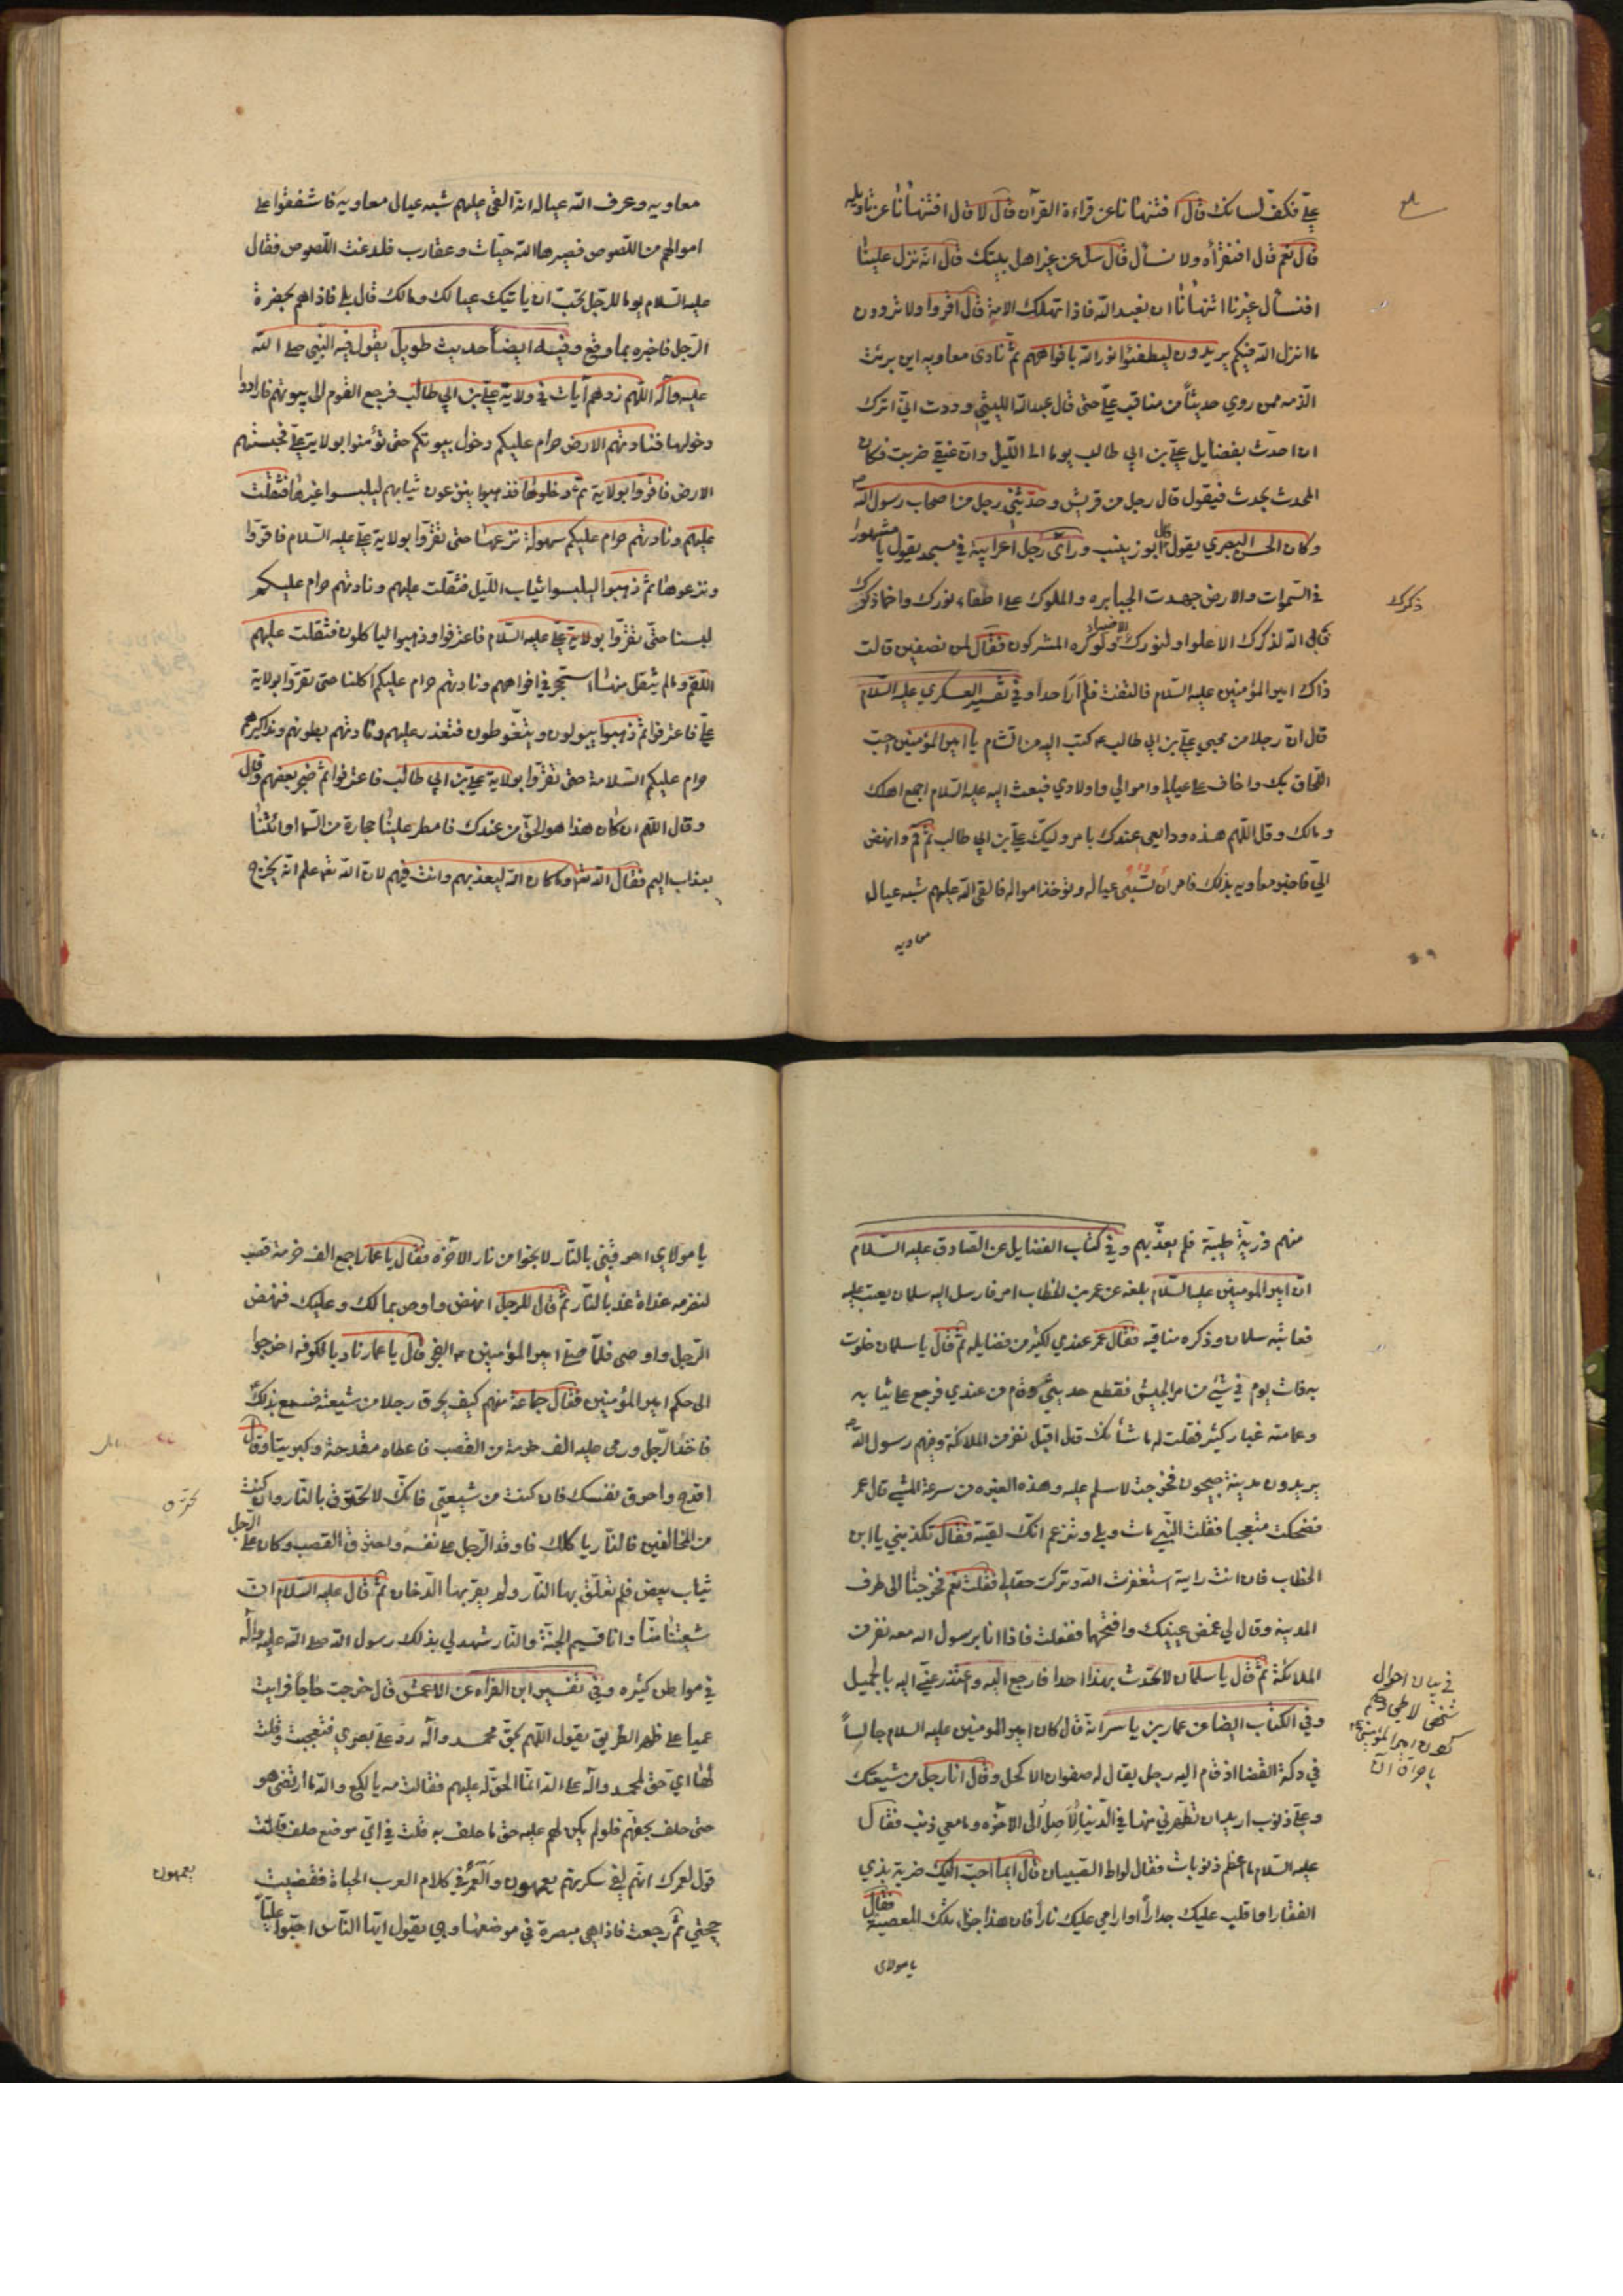 علي فكف لسانك قال افتنهانا عن قراءة القرآن قال لا قال افتنهانا عن تاويله
قال نعم قال افنقرأه ولا نسأل قال سل عن غير اهل بيتك قال انه نزل علينا
افنسأل غيرنا اتنهانا ان نعبد الله فاذا تهلك الامة قال اقروا ولا ترووا
ما انزل الله فيكم يريدون ليطفئوا نور الله بافواههم ثم نادى معاويه اين برئت
الذمه ممن روي حديثاً من مناقب علي حتى قال عبد الله الليثي وددت اني اترك
ان احدث بفضايل علي بن ابي طالب يوما الى الليل وان عنقي ضربت فكان
المحدث يحدث فيقول قال رجل من قريش وحدثني رجل من اصحاب رسول الله ص
وكان الحسن البصري يقول قال ابو زينب وراى رجل اعرابية في مسجد يقول يا مشهورا
في السموات والارض جهدت الجبابره والملوك على اطفاء نورك واخماد ذكرك
ذكرك
فابى الله لذكرك الا علوا ولنورك الا ضياء ولو كره المشركون فقال لمن تصفين قالت
ذاك امير المؤمنين عليه السلام فالتفت فلم ار احدا وفي تفسير العسكري عليه السلام
قال ان رجلا من محبي علي بن ابي طالب ع كتب اليه من الشام يا امير المؤمنين احب
اللحاق بك واخاف على عيالي واموالي واولادي فبعث اليه عليه السلام اجمع اهلك
ومالك وقل اللهم هذه ودايعي عندك بامر وليك علي بن ابي طالب ثم قم وانهض
الي فاخبر معاويه بذلك فامر ان تسبى عياله وتؤخذ امواله فالقى الله عليهم شبه عيال
معاويه
معاويه وعرف الله عياله انه القى عليهم شبه عيال معاويه فاشفقوا على
اموالهم من اللصوص فصيرها الله حيات وعقارب فلدغت اللصوص فقال
عليه السلام يوما للرجل تحب ان ياتيك عيالك ومالك قال بلى فاذا هم بحضرة
الرجل فاخبره بما وقع وفيه ايضا حديث طويل يقول فيه النبي صلى الله
عليه وآله اللهم زدهم آيات في ولاية علي بن ابي طالب فرجع القوم الى بيوتهم فارادوا
دخولها فنادتهم الارض حرام عليكم دخول بيوتكم حتى تؤمنوا بولاية علي فحبستهم
الارض فاقروا بولاية ثم دخلوها فذهبوا ينزعون ثيابهم ليلبسوا غيرها فثقلت
عليهم ونادتهم حرام عليكم سهولة نزعها حتى تقروا بولاية علي عليه السلام فاقروا
ونزعوها ثم ذهبوا ليلبسوا ثياب الليل فثقلت عليهم ونادتهم حرام عليكم
لبسنا حتى تقروا بولاية علي عليه السلام فاعترفوا وذهبوا لياكلون فثقلت عليهم
اللقم وما لم يثقل منها استحجر في افواههم ونادتهم حرام عليكم اكلنا حتى تقروا بولاية
علي فاعترفوا ثم ذهبوا يبولون ويتغوطون فتعذر عليهم ونادتهم بطونهم ومذاكيرهم
حرام عليكم السلامة حتى تقروا بولاية علي بن ابي طالب فاعترفوا ثم ضجر بعضهم وقال
وقال اللهم ان كان هذا هو الحق من عندك فامطر علينا حجارة من السما او ائتنا
بعذاب اليم فقال الله تعالى وما كان الله ليعذبهم وانت فيهم لان الله تعالى علم انه يخرج
منهم ذرية طيبة فلم يعذبهم وفي كتاب الفضايل عن الصادق عليه السلام
ان امير المومنين عليه السلام بلغه عن عمر بن الخطاب امر فارسل اليه سلمان يعتب عليه
فعاتبه سلمان وذكره مناقبه فقال عمر عندي لكثير من فضايله ثم قال يا سلمان خلوت
به ذات يوم في شئ من امر الجيش فقطع حديثي وقام من عندي فرجع على ثيابه
وعمامته غبار كثير فقلت له ما شأنك قال اقبل نفر من الملائكة وفيهم رسول الله ص
يريدون مدينة جيحون فخرجت لاسلم عليه وهذه الغبره من سرعة المشي قال عمر
فضحكت متعجبا فقلت النبي مات وبلي وتزعم انك لقيته فقال تكذبني يا ابن
الخطاب فان انت رايته استغفرت الله وتركت حقا لي فقلت نعم فخرجنا الى طرف
المدينه وقال لي غمض عينيك وافتحها ففعلت فاذا انا برسول الله معه نفر من
الملائكة ثم قال يا سلمان لا تحدث بهذا احدا فارجع اليه واعتذر عني اليه بالجميل
وفي الكتاب ايضا عن عمار بن ياسر انه قال كان امير المومنين عليه السلام جالساً
في دكة القضا اذ قام اليه رجل يقال له صفوان الاكحل وقال انا رجل من شيعتك
وعلي ذنوب اريد ان تطهرني منها في الدنيا لاصل الى الاخره وما معي ذنب فقال
عليه السلام ما اعظم ذنوبك فقال لواط الصبيان قال ايما احب اليك ضربة بذي
الفقار او اقلب عليك جدارا او ارمي عليك نارا فان هذا جزا تلك المعصية فقال
يا مولاى
في بيان احوال
باحراق النار
يا مولاي احرقني بالنار لانجوا من نار الاخره فقال يا عمار اجمع الف حزمة قصب
لنضرمه غداة غد بالنار ثم قال للرجل انهض واوص بما لك وعليك فنهض
الرجل واوصى فلما صلى امير المؤمنين ع الفجر قال يا عمار ناد بالكوفه اخرجوا
الى حكم امير المؤمنين فقال جماعة منهم كيف يحرق رجلا من شيعته فسمع بذلك
فاخذ الرجل ورمى عليه الف حزمة من القصب فاعطاه مقدحة وكبريتا وقال
اقدح واحرق نفسك فان كنت من شيعتي فانك لا تحترق بالنار وان كنت
من المخالفين فالنار ياكلك فاوقد الرجل على نفسه واحترق القصب وكان على الرجل
ثياب بيض فلم تعلق بها النار ولم يقربها الدخان ثم قال عليه السلام ان
شيعتنا منا وانا قسيم الجنة والنار شهد لي بذلك رسول الله صلى الله عليه وآله
في مواطن كثيره وفي تفسير ابن الفراء عن الاعمش قال خرجت حاجا فرايت
عميا على ظهر الطريق يقول اللهم بحق محمد وآله رد علي بصري فتعجبت وقلت
لها اي حق لمحمد وآله على الله انما الحق له عليهم فقالت مه يا لكع والله ما ارتضى هو
حتى حلف بحقهم فلو لم يكن لهم عليه حق ما حلف به قلت في اي موضع حلف قالت
قول لعمرك انهم لفي سكرتهم يعمهون والعمر في كلام العرب الحياة فقضيت
يعمهون
حجتي ثم رجعت فاذا هي مبصرة في موضعها وهي تقول ايها الناس احبوا عليا